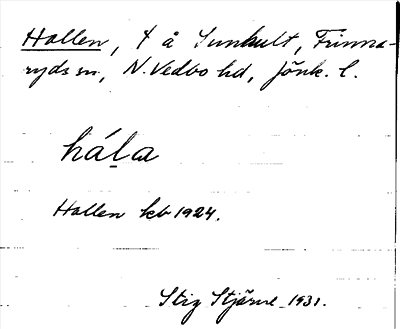 Hallen, t å Sunhult, Frinna-
ryds sn, N. Vedbo hd, Jönk. l.
hála
Hallen kb 1924.
Stig Stjärne 1931.